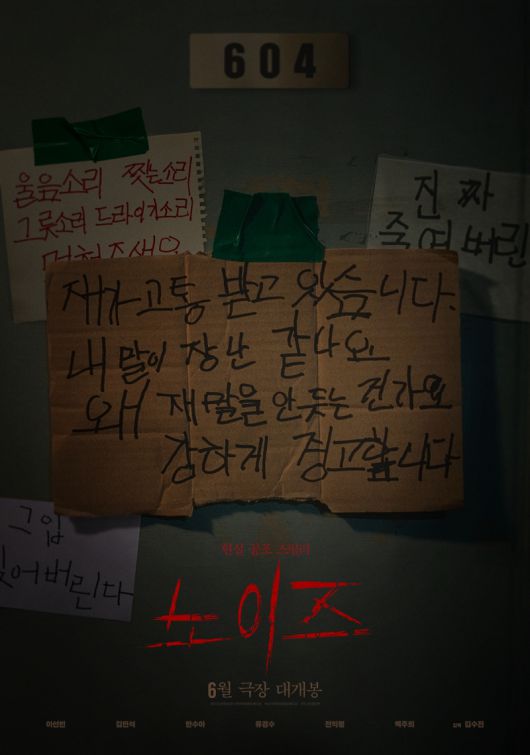 604
울음소리 짖는소리
그릇소리 드라이기소리
진짜
죽여버린
재가 고통 받고 있습니다.
내 말이 장난 같나요
왜 재 말을 안 듣는 건가요
강하게 경고합니다
그입
찢어버린다
현실 공포 스릴러
노이즈
6월 극장 대개봉
이선빈 김민석 한수아 류경수 전익령 백주희 감독 김수진